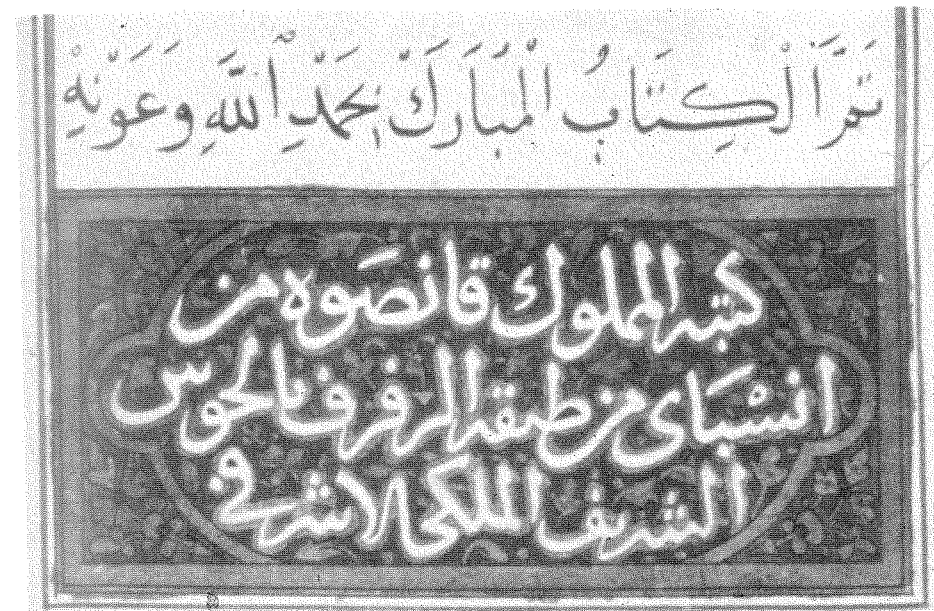 تَمَّ الْكِتَابُ الْمُبَارَكُ بِحَمْدِ اللَّهِ وَعَوْنِهِ
كتبه المملوك قانصَوه من
انسْبَاى من طبقه الرفرف بالحوس
الشريف الملكى الاشرفى